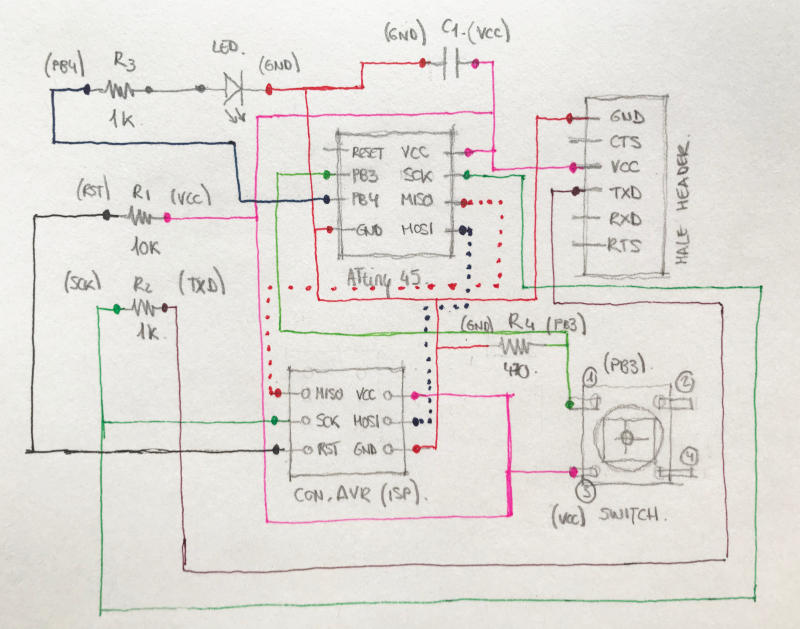 (PB4)
R3
1K
LED.
(GND)
(GND)
C1.
(VCC)
RESET VCC
PB3 SCK
PB4 MISO
GND MOSI
ATtiny 45
GND
CTS
VCC
TXD
RXD
RTS
MALE HEADER.
(RST)
R1
(VCC)
10K
(SCK)
R2
(TXD)
1K
(GND)
R4
(PB3)
470
MISO VCC
SCK MOSI
RST GND
CON. AVR (ISP).
(PB3)
1
2
3
4
(VCC)
SWITCH.